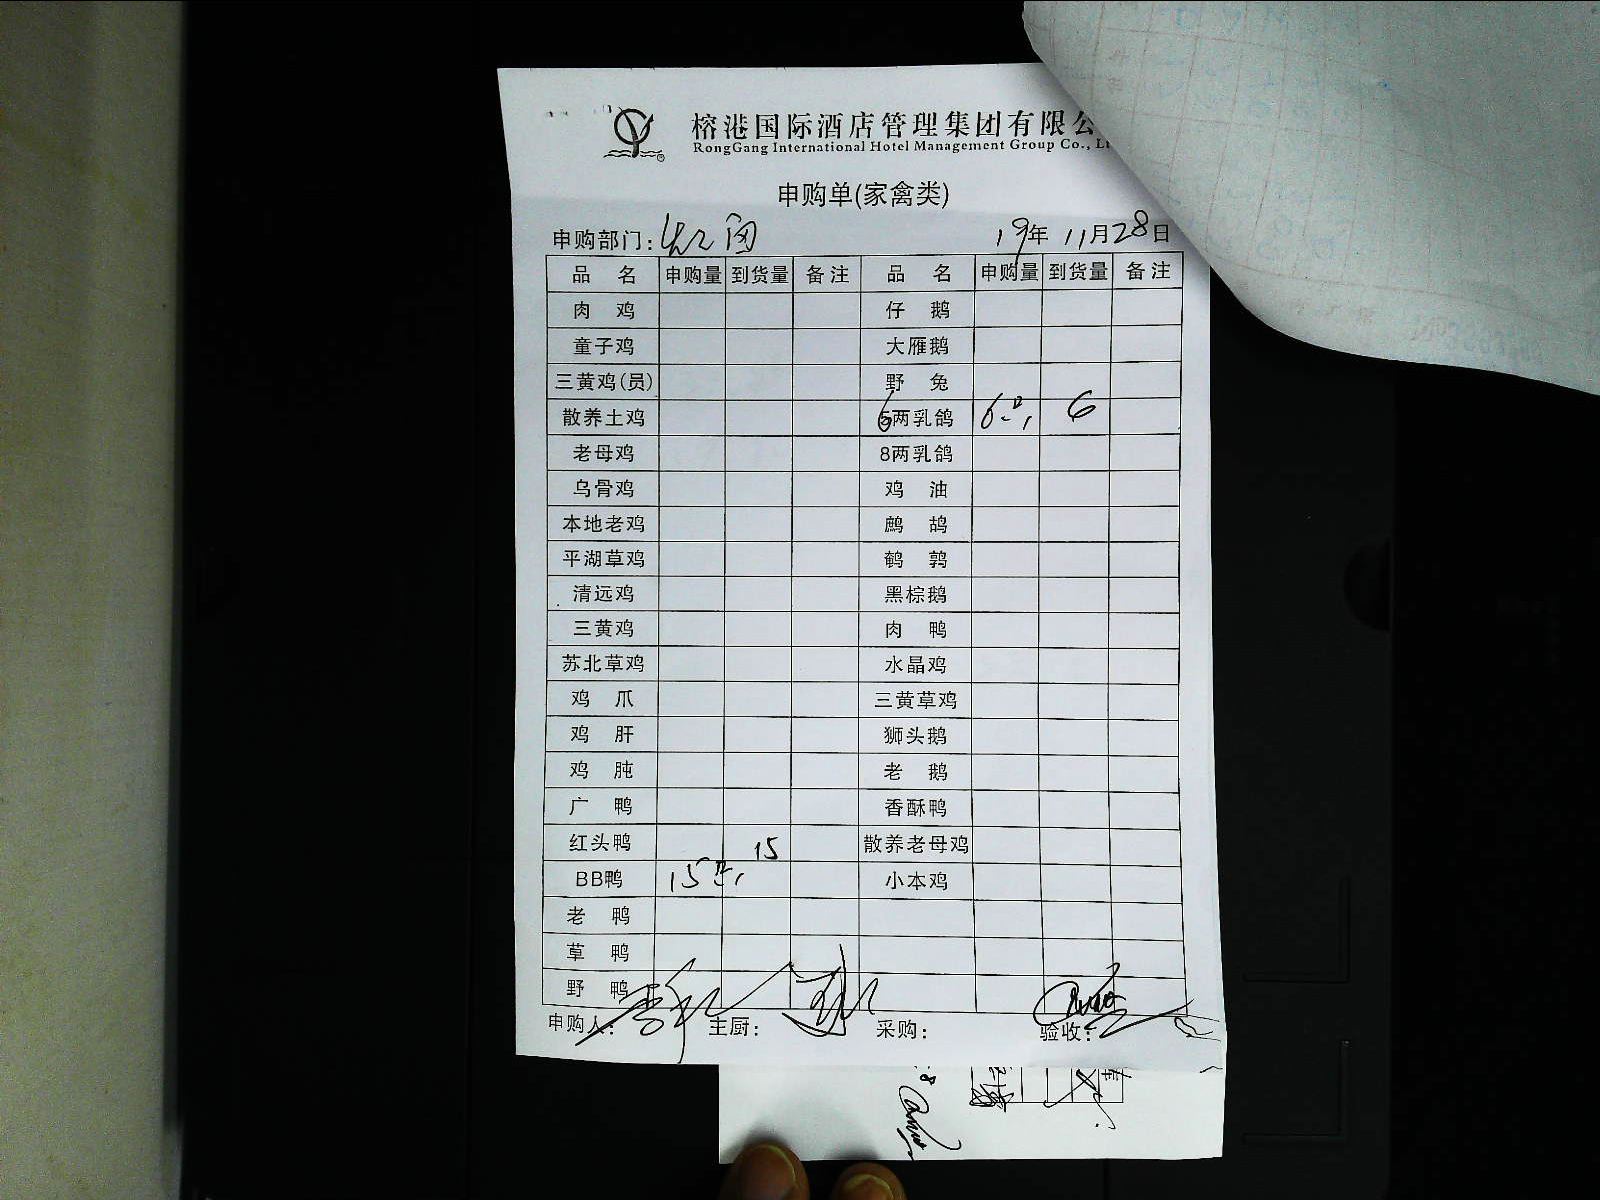 榕港国际酒店管理集团有限公
RongGang International Hotel Management Group Co., Lt
申购单(家禽类)
申购部门:
19年 11月28日
品 名 申购量 到货量 备注 品 名 申购量 到货量 备注
肉 鸡 仔 鹅
童子鸡 大雁鹅
三黄鸡(员) 野 兔
散养土鸡 6两乳鸽 6 6
老母鸡 8两乳鸽
乌骨鸡 鸡 油
本地老鸡 鹧 鸪
平湖草鸡 鹌 鹑
清远鸡 黑棕鹅
三黄鸡 肉 鸭
苏北草鸡 水晶鸡
鸡 爪 三黄草鸡
鸡 肝 狮头鹅
鸡 肫 老 鹅
广 鸭 香酥鸭
红头鸭 15 散养老母鸡
BB鸭 15 小本鸡
老 鸭
草 鸭
野 鸭
申购人: 主厨: 采购: 验收: